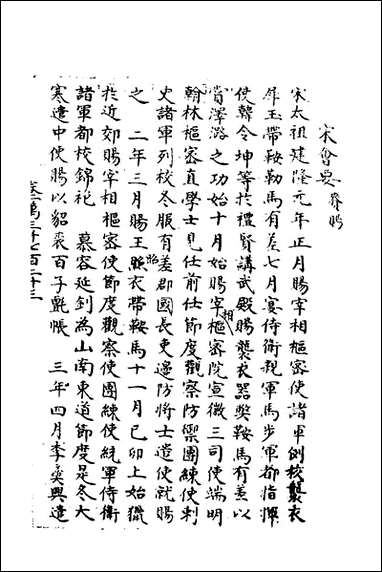 宋會要 賚賜
宋太祖建隆元年正月賜宰相樞密使諸軍列校襲衣
犀玉帶鞍勒馬有差七月宴侍衛親軍馬步軍都指揮
使韓令坤等於禮賢講武殿賜襲衣器獘鞍馬有差以
賞澤潞之功始十月始賜宰相樞密院宣徽三司使端明
翰林樞密直學士見任前任節度觀察防禦團練使刺
史諸軍列校冬服有差郡國長吏邊防將士遣使就賜
之 二年三月賜王貽衣帶鞍馬十一月己卯上始獵
於近郊賜宰相樞密使節度觀察使團練使統軍侍衛
諸軍都校錦袍 慕容延釗為山南東道節度是冬大
寒遣中使賜以貂裘百子氈帳 三年四月李奐興遣
卷一萬三千七百二十三